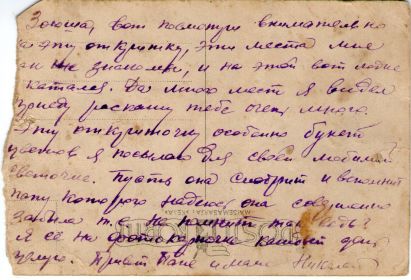 Зоюша, вот посмотри внимательно
на эту открытку, эти места мне
знакомы, и на этой вот лодке
катался. Да много мест я видел
приеду раскажу тебе очень много.
Эту открыточку особенно букет
цветов я посылаю для своей любимой
светочке. Пусть она смотрит и вспомнит
папу которого надеюсь она совершенно
забыла т.е. не помнит так ведь?
Я её на фотокарточке
Привет Папе и маме Николай